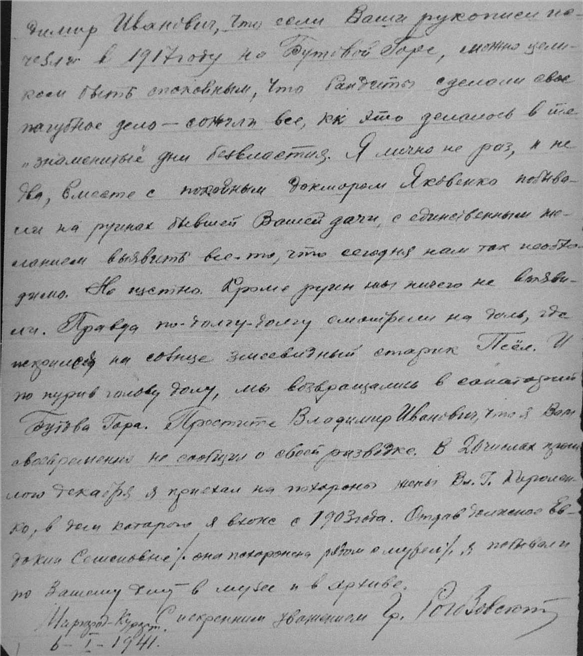 димир Иванович, что если Ваши рукописи по
чезли в 1917 году на Бутовой Горе, можно цели-
ком быть спокойным, что бандиты сделали свое
пагубное дело — сожгли все, кк это делалось в те
„знаменитые дни безвластия. Я лично не раз, и не
два, вместе с покойным доктором Яковенко побыва-
ли на руинах бывшей Вашей дачи, с единственным же-
ланием выявить все-то, что сегодня нам так необхо-
димо. Но тщетно. Кроме руин мы ничего не выяви-
ли. Правда по-долгу-долгу смотрели на даль, где
искрился на солнце змеевидный старик Псёл. И
по нурив голову долу, мы возвращались в санаторий
Бутова Гора. Простите Владимир Иванович, что я Вам
своевременно не сообщил о своей разведке. В 20 числах прош
лого декабря я приехал на похороны жены Вл. Г. Королен-
ко, в дом которого я вхожс с 1903 года. Отдав должное Ев-
докии Семеновне /. она похоронена рядом с мужем /. я побывал и
по Вашему делу в музее и в архиве.
С искренним уважением Гр.
Миргород-Курорт.
6-I-1941.